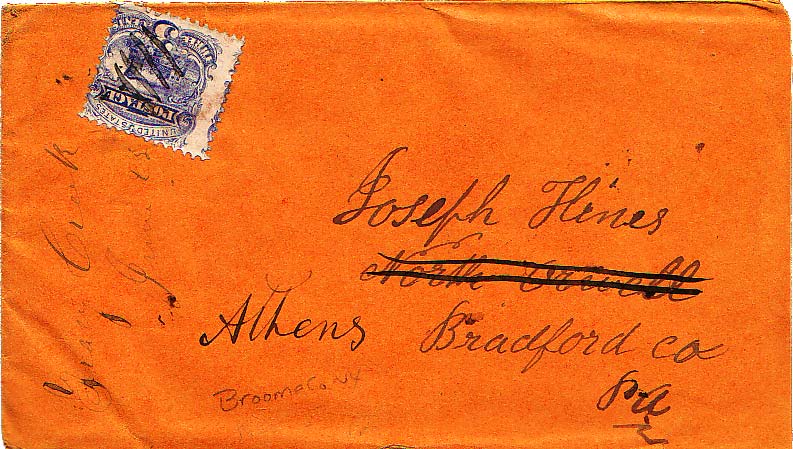 UNITED STATES
POSTAGE
Creek
June 23
Joseph Hines
North Orwell
Athens Bradford co
Pa
Broome Co NY